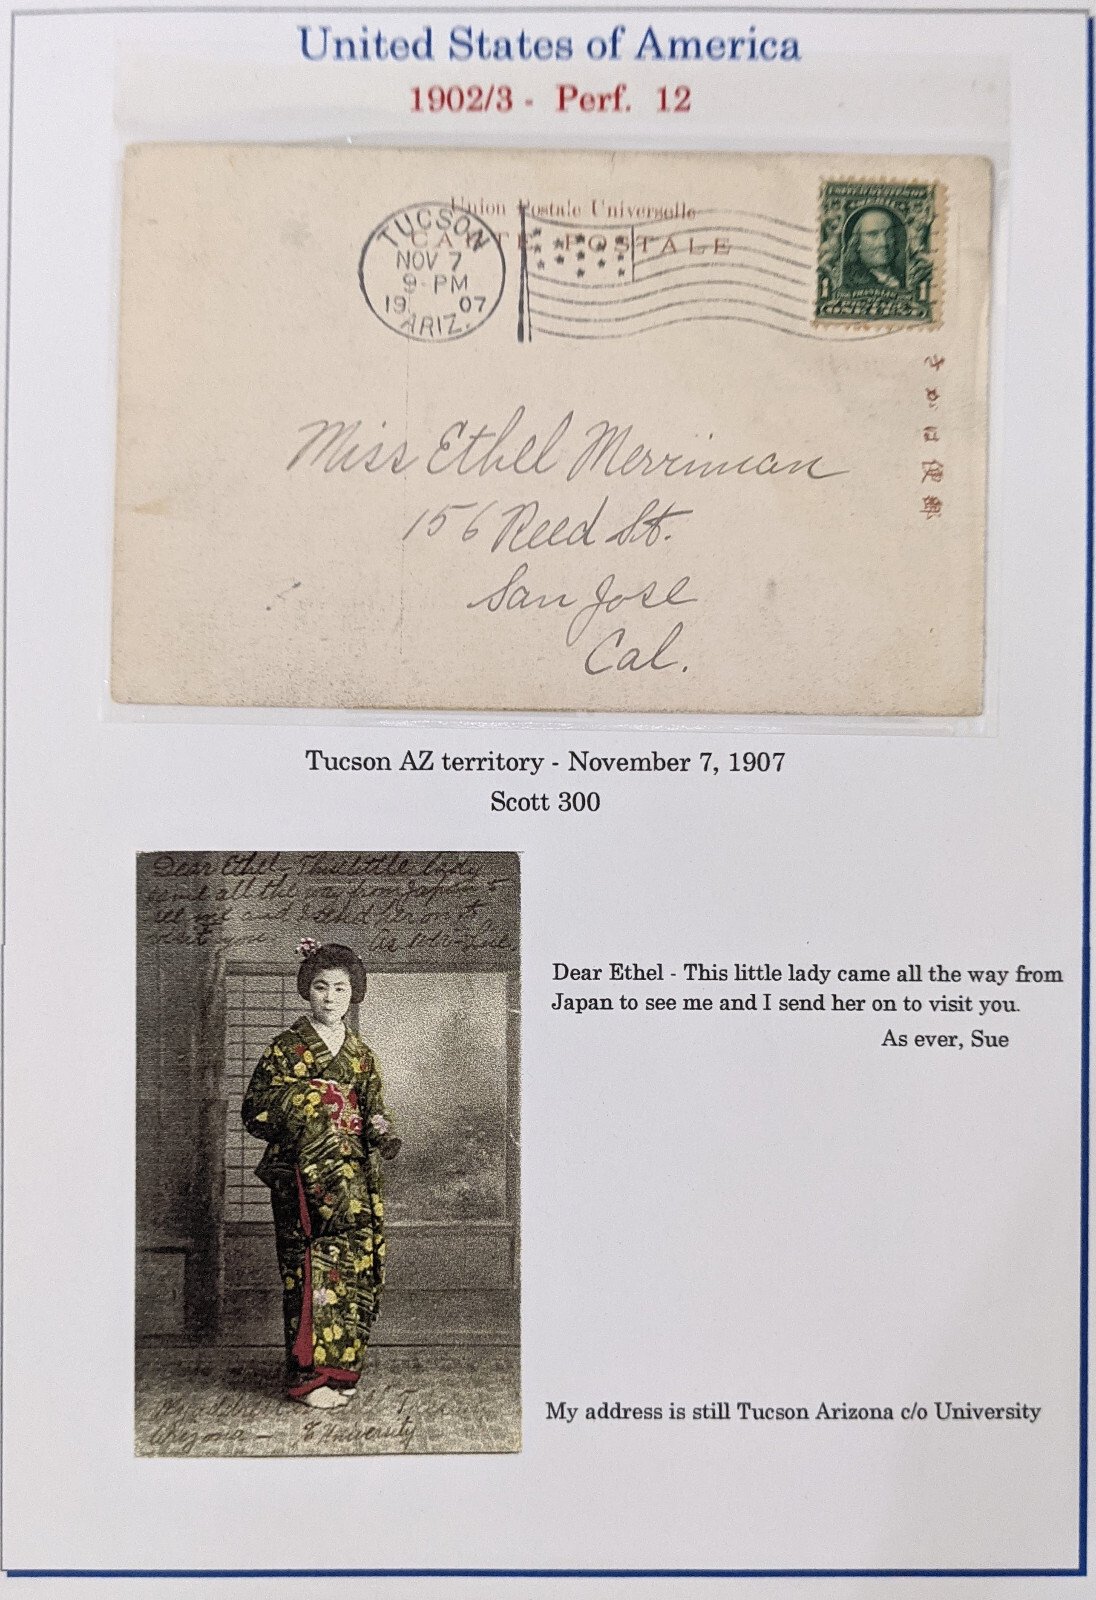 United States of America
1902/3 - Perf. 12
Union Postale Universelle
CARTE POSTALE
TUCSON
NOV 7
9 - PM
19 07
ARIZ.
1 1
ONE CENT
きかは便郵
Miss Ethel Merriman
156 Reed St.
San Jose
Cal.
Tucson AZ territory - November 7, 1907
Scott 300
Dear Ethel - This little lady
came all the way from Japan to
see me and I send her on to
visit you. As ever - Sue
Dear Ethel - This little lady came all the way from
Japan to see me and I send her on to visit you.
As ever, Sue
My address is still Tucson
Arizona - c/o University
My address is still Tucson Arizona c/o University